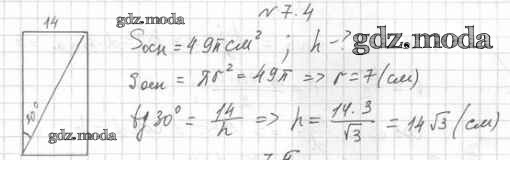 № 7.4
14
gdz.moda
Sосн = 49π см² ; h - ?
gdz.moda
Sосн = πr² = 49π => r = 7 (см)
30°
tg 30° = 14/h => h = 14·3/√3 = 14√3 (см)
gdz.moda